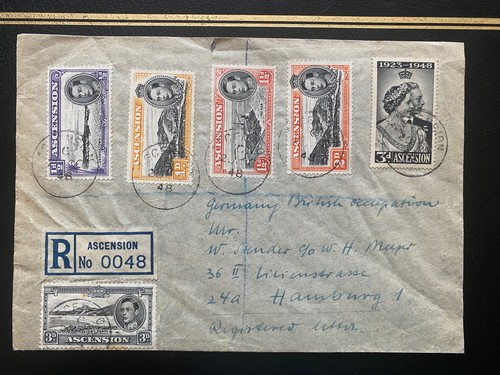 ½d ASCENSION ½d
ASCENSION 1D
1½d ASCENSION 1½d
ASCENSION 3D
1923-1948
3d ASCENSION
48
48
48
Germany British occupation
Mr.
W. Sender c/o W. H. Meyer
36 II Lilienstrasse
24a Hamburg 1
Registered letter
R ASCENSION
No 0048
3D ASCENSION 3D